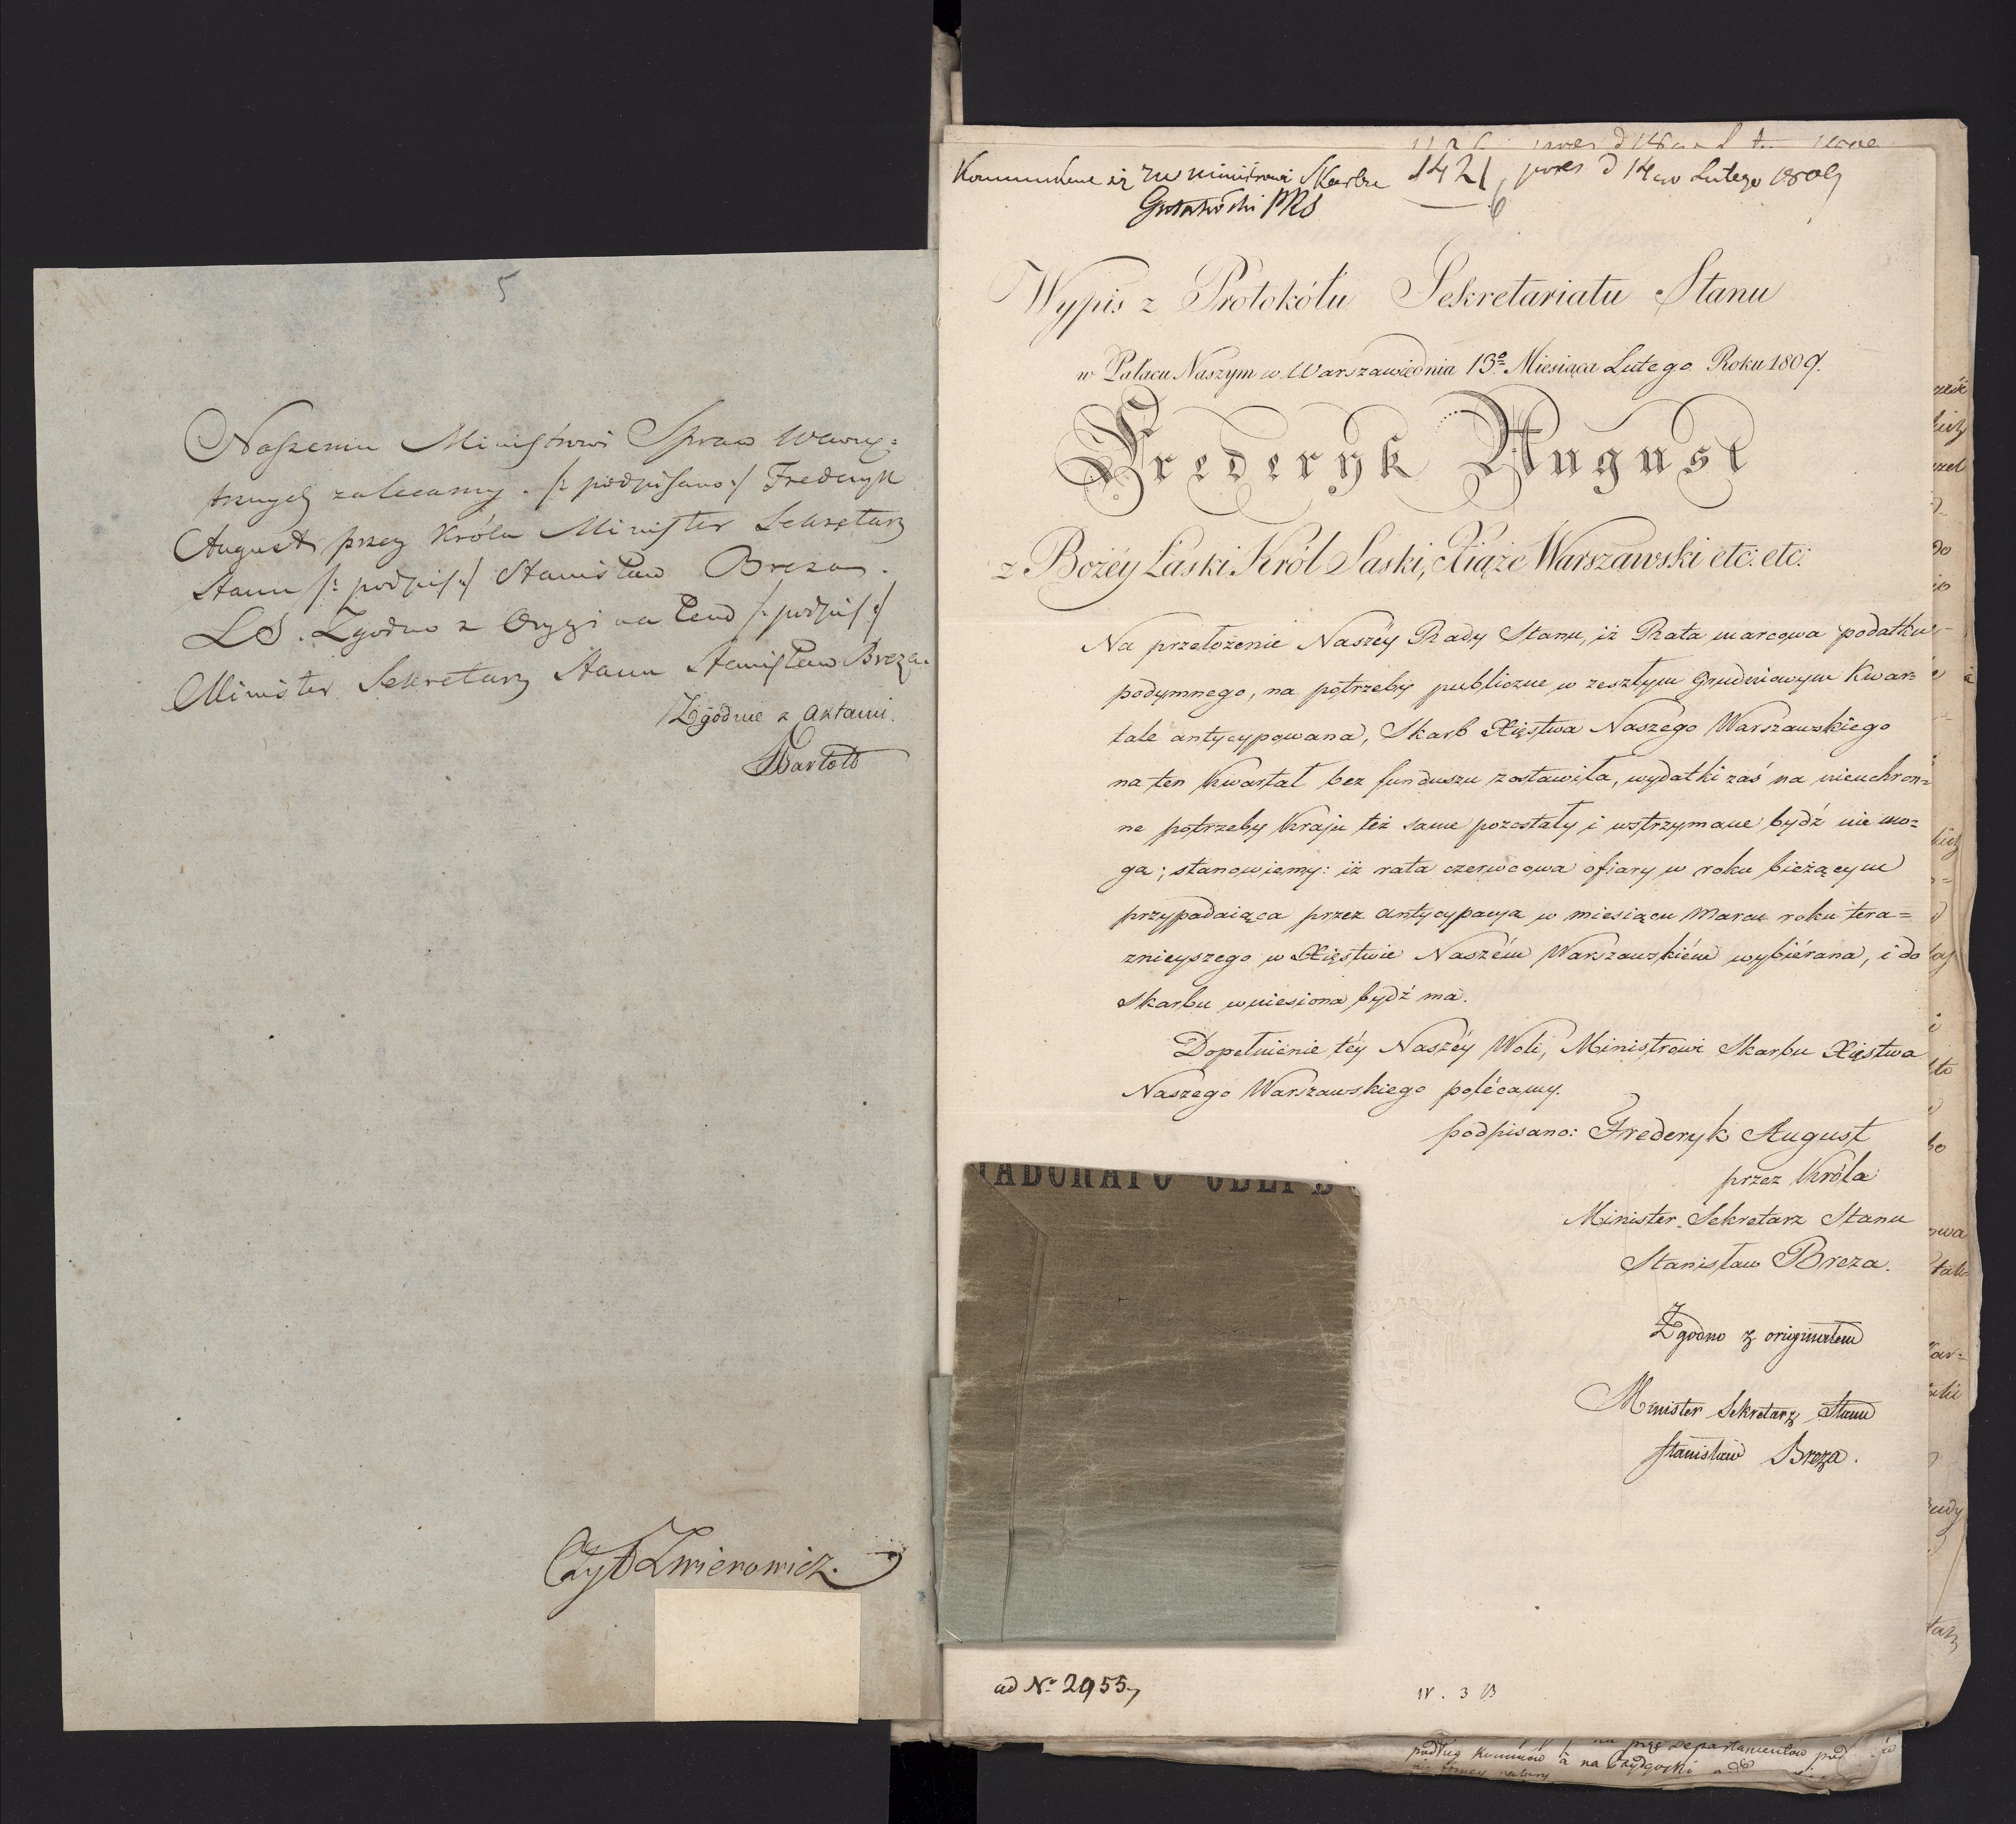 5
Naszemu Ministrowi Spraw Wewnę=
trznych zalecamy. /: podpisano :/ Frederyk
August przez Króla Minister Sekretarz
Stanu /: podpis :/ Stanisław Breza.
LS. Zgodno z Oryginałem /: podpis :/
Minister Sekretarz Stanu Stanisław Breza.
Zgodnie z Aktami.
Czyt Zwierowicz.
Ministrowi Skarbu
1421, pres d 14go Lutego 1809
6
Wypis z Protokółu Sekretariatu Stanu
w Pałacu Naszym w Warszawie dnia 13o Miesiąca Lutego Roku 1809.
Frederyk August
z Bożéy Łaski Król Saski, Xiąże Warszawski etc: etc:
Na przełożenie Naszéy Rady Stanu, iż Rata marcowa podatku
podymnego, na potrzeby publiczne w zeszłym grudniowym Kwar=
tale antycypowana, Skarb Xięstwa Naszego Warszawskiego
na ten Kwartał bez funduszu zostawiła, wydatki zaś na nieuchron=
ne potrzeby Kraju też same pozostały i wstrzymane bydź nie mo=
gą; stanowiemy: iż rata czerwcowa ofiary w roku bieżącym
przypadaiąca przez antycypacyą w miesiącu Marcu roku tera=
znieyszego w Xięstwie Naszém Warszawskiém wybiérana, i do
Skarbu wniesiona bydź ma.
Dopełnienie téy Naszéy Woli, Ministrowi Skarbu Xięstwa
Naszego Warszawskiego polécamy.
podpisano: Frederyk August
przez Króla
Minister Sekretarz Stanu
Stanisław Breza.
Zgodno z originałem
Minister Sekretarz Stanu
Stanisław Breza.
ad No 2955,